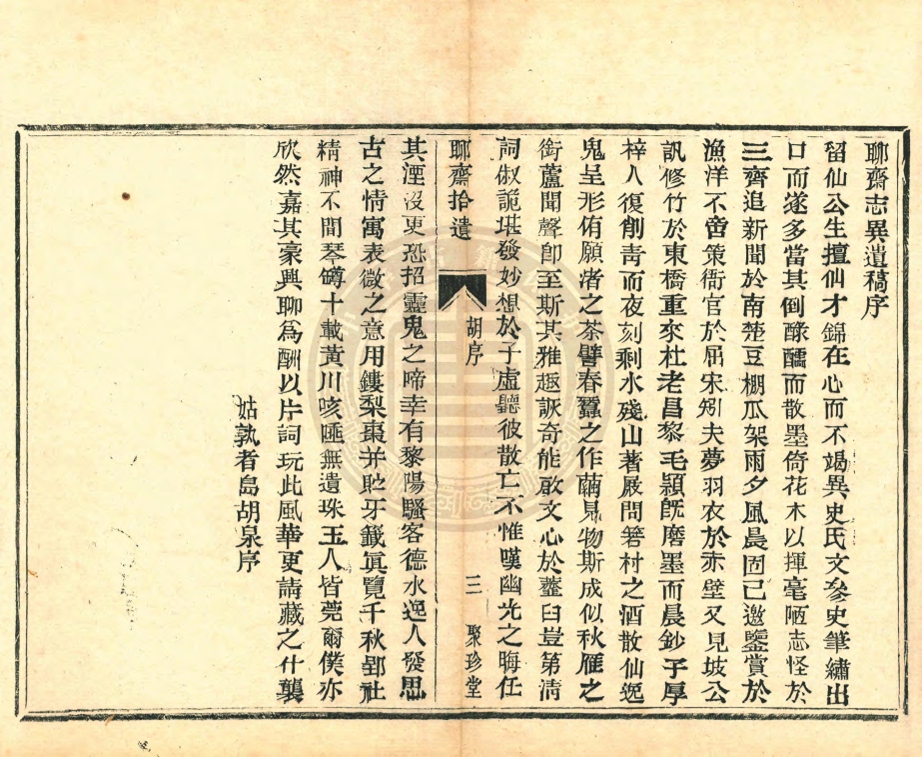 聊齋志異遺稿序
留仙公生擅仙才錦在心而不竭異史氏文參史筆繡出
口而遂多當其倒醁醽而散墨倚花木以揮毫陋志怪於
三齊追新聞於南楚豆棚瓜架雨夕風晨固已邀鑒賞於
漁洋不啻策衙官於屈宋矧夫夢羽衣於赤壁又見坡公
訊修竹於東橋重來杜老昌黎毛穎旣磨墨而晨鈔子厚
梓人復削青而夜刻剩水殘山著屐問箬村之酒散仙逸
鬼呈形侑願渚之茶譬春蠶之作繭見物斯成似秋雁之
銜蘆聞聲卽至斯其雅趣詼奇能啟文心於虀臼豈第清
詞俶詭堪發妙想於子虛聽彼散亡不惟嘆幽光之晦任
聊齋拾遺
胡序
三
聚珍堂
其湮沒更恐招靈鬼之啼幸有黎陽騷客德水逸人發思
古之情寓表微之意用鏤梨棗并貯牙籤眞覽千秋鄴社
精神不間琴罇十載黃川咳唾無遺珠玉人皆莞爾僕亦
欣然嘉其豪興聊爲酬以片詞玩此風華更請藏之什襲
姑孰者島胡泉序